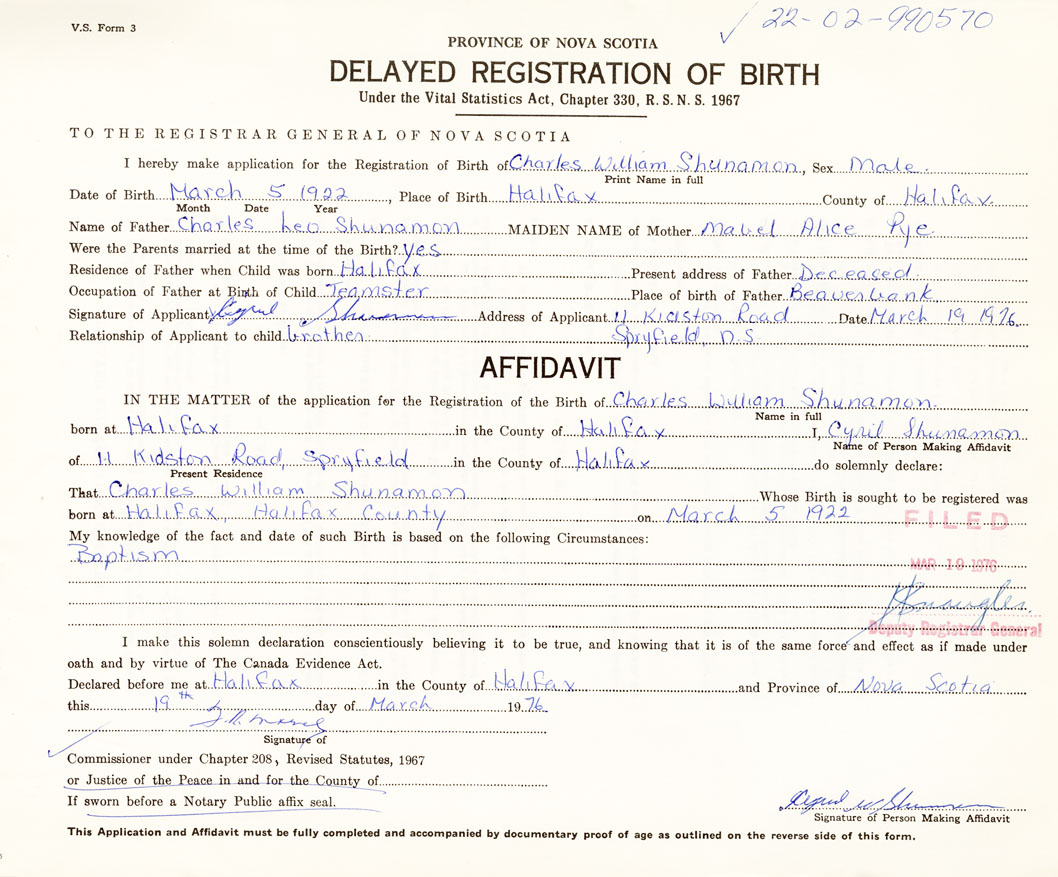 V.S. Form 3
22-02-990570
PROVINCE OF NOVA SCOTIA
DELAYED REGISTRATION OF BIRTH
Under the Vital Statistics Act, Chapter 330, R. S. N. S. 1967
TO THE REGISTRAR GENERAL OF NOVA SCOTIA
I hereby make application for the Registration of Birth of Charles William Shunamon, Sex Male
Print Name in full
Date of Birth March 5 1922, Place of Birth Halifax County of Halifax
Month Date Year
Name of Father Charles Leo Shunamon MAIDEN NAME of Mother Mabel Alice Pye
Were the Parents married at the time of the Birth? yes
Residence of Father when Child was born Halifax Present address of Father Deceased
Occupation of Father at Birth of Child Teamster Place of birth of Father Beaverbank
Signature of Applicant Cyril Shunamon Address of Applicant 11 Kidston Road Date March 19 1976
Relationship of Applicant to child brother Spryfield, N.S.
AFFIDAVIT
IN THE MATTER of the application for the Registration of the Birth of Charles William Shunamon
Name in full
born at Halifax in the County of Halifax I, Cyril Shunamon
Name of Person Making Affidavit
of 11 Kidston Road, Spryfield in the County of Halifax do solemnly declare:
Present Residence
That Charles William Shunamon Whose Birth is sought to be registered was
born at Halifax, Halifax County on March 5 1922
FILED
My knowledge of the fact and date of such Birth is based on the following Circumstances:
Baptism
MAR 19 1976
Deputy Registrar General
I make this solemn declaration conscientiously believing it to be true, and knowing that it is of the same force and effect as if made under
oath and by virtue of The Canada Evidence Act.
Declared before me at Halifax in the County of Halifax and Province of Nova Scotia
this 19th day of March 1976
Signature of
Commissioner under Chapter 208, Revised Statutes, 1967
or Justice of the Peace in and for the County of
If sworn before a Notary Public affix seal.
Cyril W Shunamon
Signature of Person Making Affidavit
This Application and Affidavit must be fully completed and accompanied by documentary proof of age as outlined on the reverse side of this form.